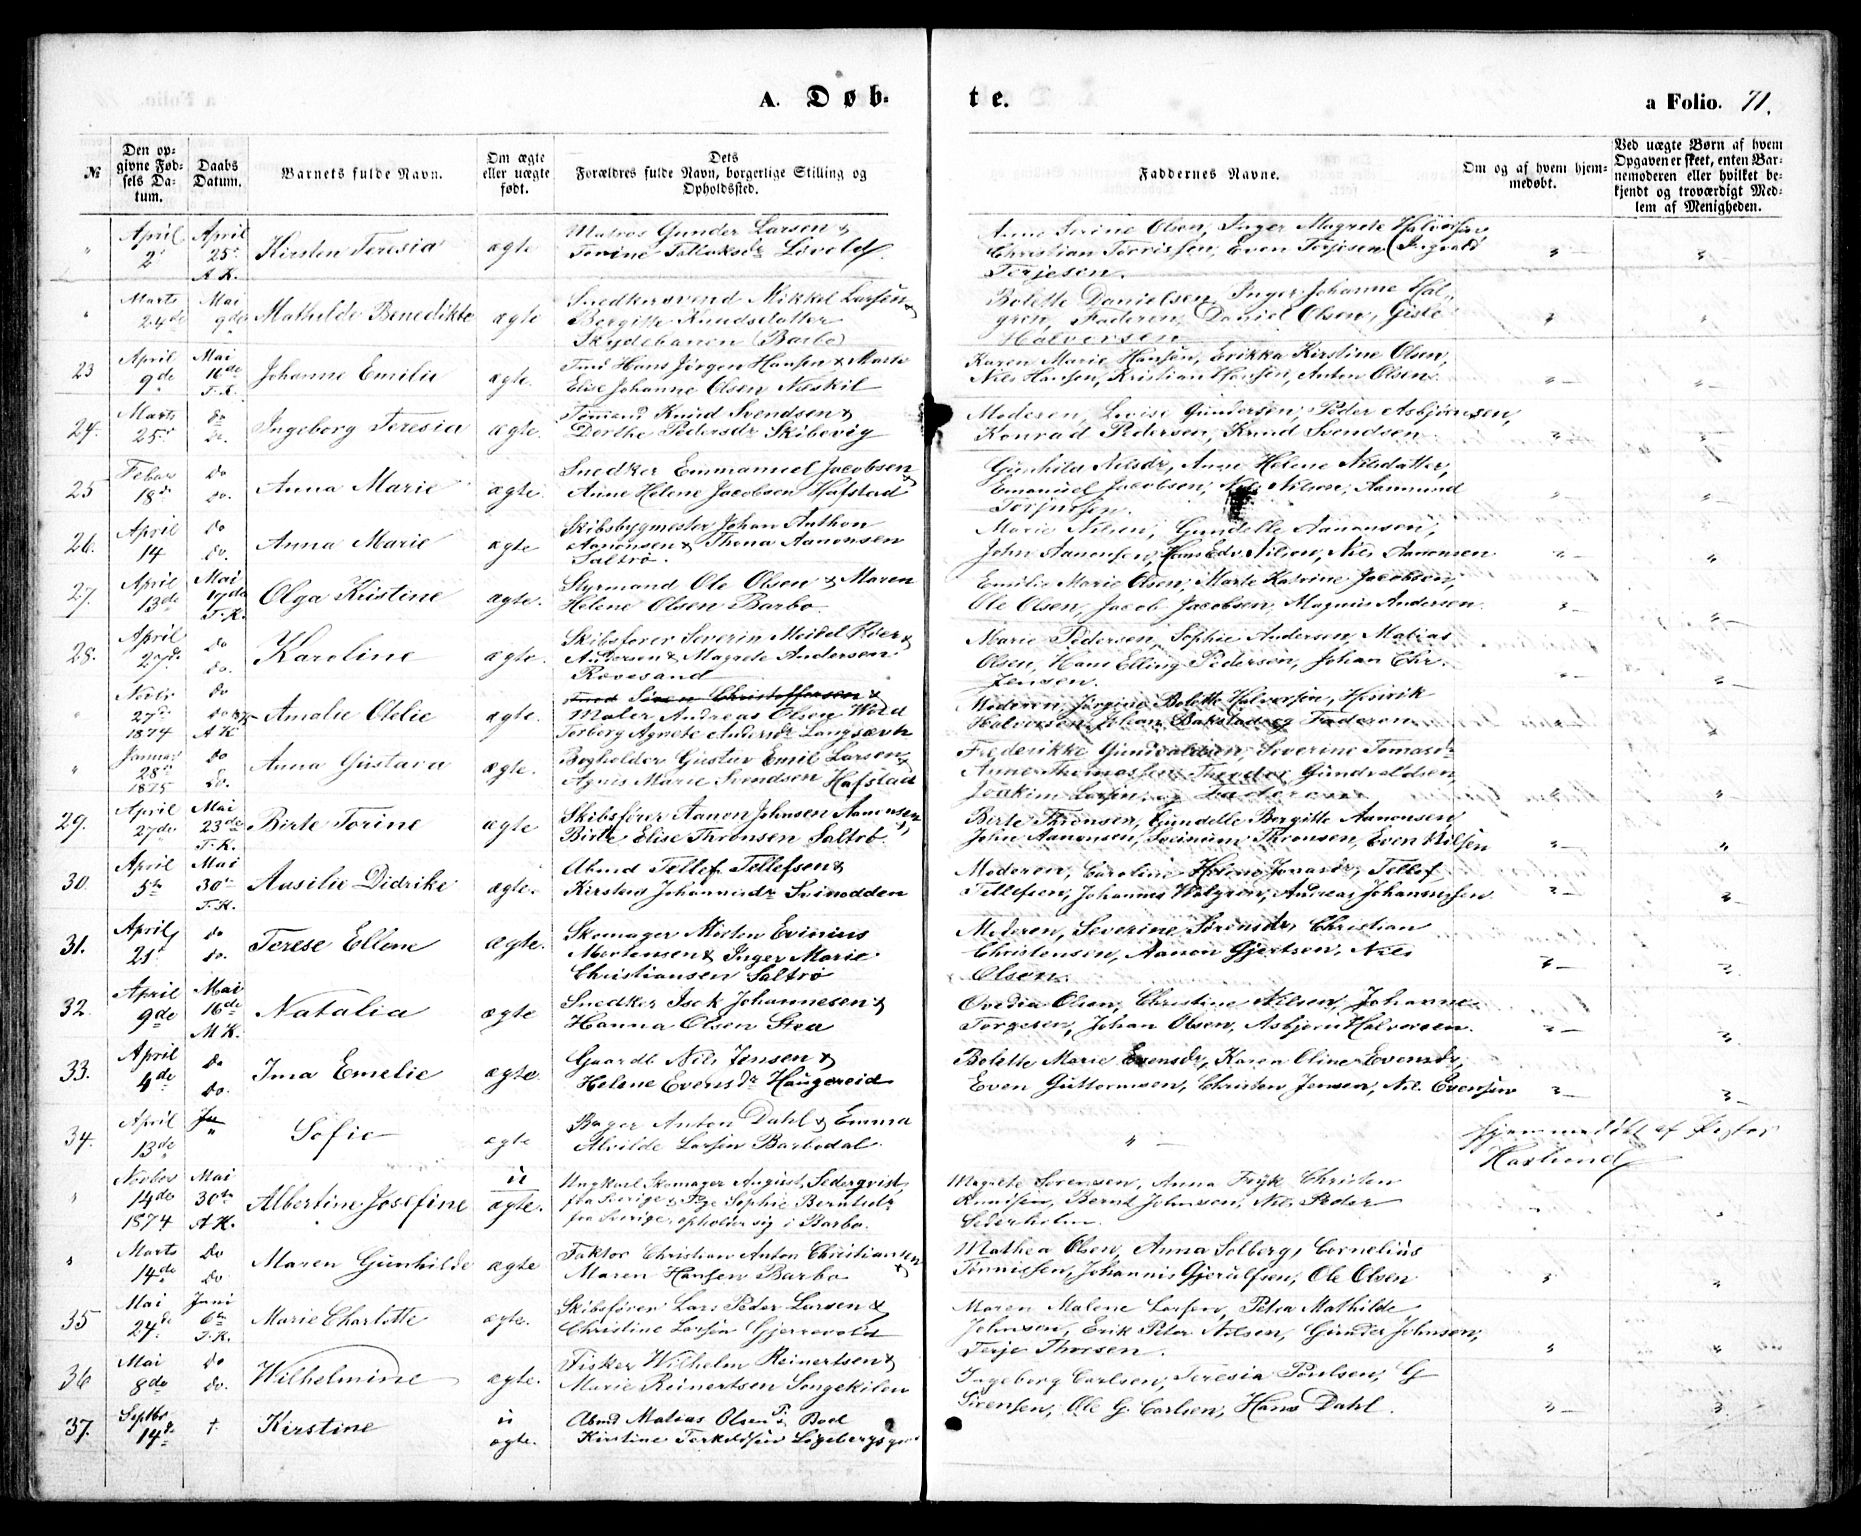 A. Døb-
te.
a Folio. 71.
№
Den op-
givne Fød-
sels Da-
tum.
Daabs
Datum.
Barnets fulde Navn.
Om ægte
eller uægte
født.
Dets
Forældres fulde Navn, borgerlige Stilling og
Opholdssted.
Faddernes Navne.
Om og af hvem hjem-
medøbt.
Ved uægte Børn af hvem
Opgaven er skeet, enten Bar-
nemoderen eller hvilket be-
kjendt og troværdigt Med-
lem af Menigheden.
" April 2 April 25 A.K. Kirsten Teresia ægte Matros Gunder Larsen &
Torine Løvold
Anne Serine Olsen, Inger Magrete Halvorsen
Christian Tørrissen, Even Terjesen, Ingvald
Terjesen.
" Marts 24de Mai 9de Mathilde Benedikte ægte Snedkersvend Mikkel Larsen &
Borgitte Knudsdatter
Skydebanen (Barbo)
Bolette Danielsen, Inger Johanne
Faderen, Daniel Olsen, Gisle
Halvorsen
23 April 9de Mai 16de T.K. Johanne Emilie ægte. Tmd Hans Jørgen Hansen &
Elise Johanne Olsen Næskil
Karen Marie Hansen, Erikka Kirstine Olsen,
Nils Hansen, Kristian Hansen, Anton Olsen.
24. Marts 25 do do. Ingeborg Teresia ægte. Tømmd Knud Svendsen &
Dorthe Pedersdr Skibevig
Moderen, Lovise Gundersen, Peder Asbjørnsen,
Konrad Pedersen, Knud Svendsen
25 Febuar 18de do do. Anna Marie ægte. Snedker Emmanuel Jacobsen &
Anne Helene Jacobsen Hafstad
Gunhild Nilsdr, Anne Helene Nilsdatter,
Emanuel Jacobsen, Nils Nilsen, Aamund
26. April 14 do do. Anna Marie ægte Skibsbygmester Johan Anthon
Aanonsen & Thona Aanonsen
Saltrø.
Marie Nilsen, Gundelle Aanonsen,
John Aanonsen, Hans Edv. Nilsen, Nils Aanonsen
27. April 13de Mai 17de T.K. Olga Kristine ægte. Styrmand Ole Olsen & Maren
Helene Olsen Barbo.
Emilie Marie Olsen, Marte Katrine Jacobsen,
Ole Olsen, Jacob Jacobsen, Magnus Andersen
28. April 27de do do. Karoline ægte. Skibsfører Severin Meidel
Andersen & Magrete Andersen
Rævesand
Marie Pedersen, Sophie Andersen, Matias
Olsen, Hans Elling Pedersen, Johan Chr.
Jensen.
" Novbr 27de 1874 do A.K. Amalie Otelie ægte. Tmd Sven Christoffersen &
Maler Andreas Olsen Wold
Torborg Agnete Andersdr Langsævn
Moderen, Jørgine Bolette Halvorsen, Henrik
Halvorsen, Johan Bakstad og Faderen
" Januar 28de 1875 do do. Anna Gustava ægte. Bogholder Gustav Emil Larsen &
Agnis Marie Svendsen Hafstad
Frederikke Gundvaldsen, Severine
Anne Thomassen, Theodor Gundvaldsen
Joakim Larsen, og Faderen
29. April 27de Mai 23de T.K. Birte Torine ægte Skibsfører Aanon Johnsen Aanonsen,
Birte Elise Thronsen Saltrø.
Birte Thronsen, Gundelle Borgitte Aanonsen,
John Aanonsen, Thronsen, Even Nilsen
30. April 5te Mai 30te T.K. Ausilie Didrike ægte. Abmd Tellef Tellefsen &
Kirsten Johannesdr Svinodden
Moderen, Caroline Helene Jonasdr, Tellef
Tellefsen, Johannes Walgren, Andreas Johannessen
31. April 21 do do. Terese Ellene ægte. Skomager Morten Evinius
Mortensen & Inger Marie
Christiansen Saltrø
Moderen, Severine Sørensdr, Christian
Christensen, Aanon Gjertsen, Nils
Olsen.
32. April 9de Mai 16de M.K. Natalia ægte Snedker Isak Johannesen &
Hanna Olsen Stea
Ovedia Olsen, Christine Nilsen, Johanne
Torgesen, Johan Olsen, Asbjørn Halvorsen.
33. April 4de do do. Ima Emelie ægte. Gaardb Nils Jensen &
Helene Evensdr Haugereid
Bolette Marie Evensdr, Karen Oline Evensdr,
Even Guttormsen, Christen Jensen, Nils Evensen
34. April 13de Sofie ægte Bager Anton Dahl & Emma
Alvilde Larsen Barbodal.
Hjemmedøbt af Pastor
Haslund
" Novber 14de 1874 Mai 30te A.K. Albertine Josefine uægte. Ungkarl Skomager August Sedergvist,
fra Sverige & Pge Sophie
fra Sverige, opholder sig i Barbo.
Magrete Sørensen, Anna Fryk, Christen
Knudsen, Bernt Johnsen, Nils Peder
Sederholm.
" Marts 14de Do Do Maren Gunhilde ægte Faktor Christian Anton Christiansen &
Maren Hansen Barbo
Mathea Olsen, Anna Solberg, Cornelius
Tønnissen, Johannis Gjerulfsen, Ole Olsen
35 Mai 24de Juni 6te T.K. Marie Charlotte ægte. Skibsfører Lars Peder Larsen &
Christine Larsen Gjerrevold
Maren Malene Larsen, Petra Mathilde
Johnsen, Erik Peter Nilsen, Gunder Johnsen,
Terje Thorsen.
36 Mai 8de do do. Wilhelmine ægte. Fisker Wilhelm Reinertsen &
Marie Reinertsen Songekilen
Ingeborg Carlsen, Teresia Poulsen, G
Sørensen, Ole G. Carlsen, Hans Dahl.
37. Septbr 14de †. Kirstine uægte. Abmd Matias Olsen & Boel
Kirstine Torkildsen